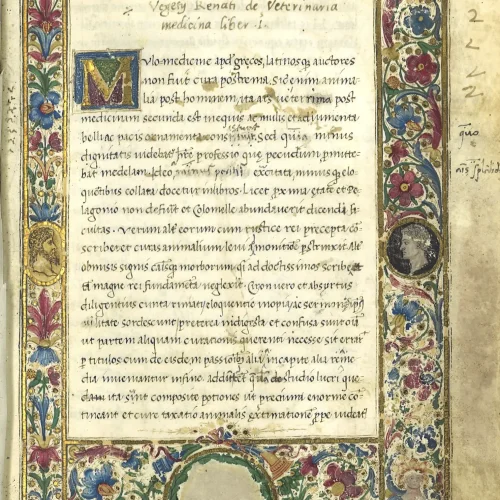 Vegety Renati de Veterinaria
medicina liber · 1 ·
Mulo medicine apud grecos, latinosq; auctores
non fuit cura postrema. Sic enim anima
lia post hominem, ita ars veterinaria post
medicinam secunda est in equis ac mulis et adiumenta
belli ac pacis ornamenta Sed quia minus
dignitatis videbatur professio que pecudum promitte
bat medelam. Ideo exercitata minus q; elo
quentibus collata docetur in libros. Licet proxima etate et Pe
lagonio non defuerit et Colomelle abundaverit dicendi fa
cultas. Verum alter eorum cum rustice rei precepta co
scriberet curas animalium levi admonitione perstrinxit alter
obmissis signis causisq; morborum quasi ad doctissimos scriberet
tam magne rei fundamenta neglexit. Chron vero et absyrtus
diligentius cuncta rimati eloquentie inopia ac sermonis ipsius
vilitate sordescunt preterea indigesta et confusa sunt omnia
ut partem aliquam curationis querenti necesse sit errare
per titulos cum de eisdem passionibus alia in capite alia
dia inveniantur in fine additur quia de studio lucri que
dam ita sunt composite potiones ut precium enorme co
tineant et cure taxatio animalis extimationem prope videatur
quio
nis
2
2
2
2